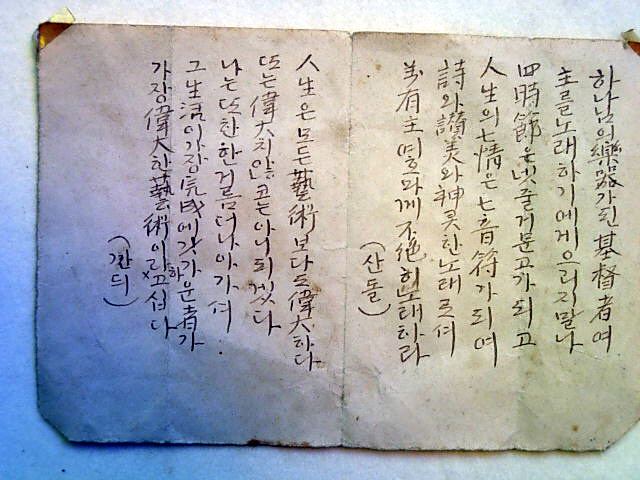 하나님의 樂器가된 基督者여
主를노래하기에게으리지말나
四時節은넷줄거문고가되고
人生의七情은七音符가되여
詩와讚美와神灵한노래로셔
萬有主여호와께不絶히노래하라
(산돌)
人生은모든藝術보다도偉大하다
또는偉大치안코는아니되겟다
나는또한한거름더나아가셔
그生活이가장完成에갓가운者가
가장偉大한藝術이라고십다
(깐듸)